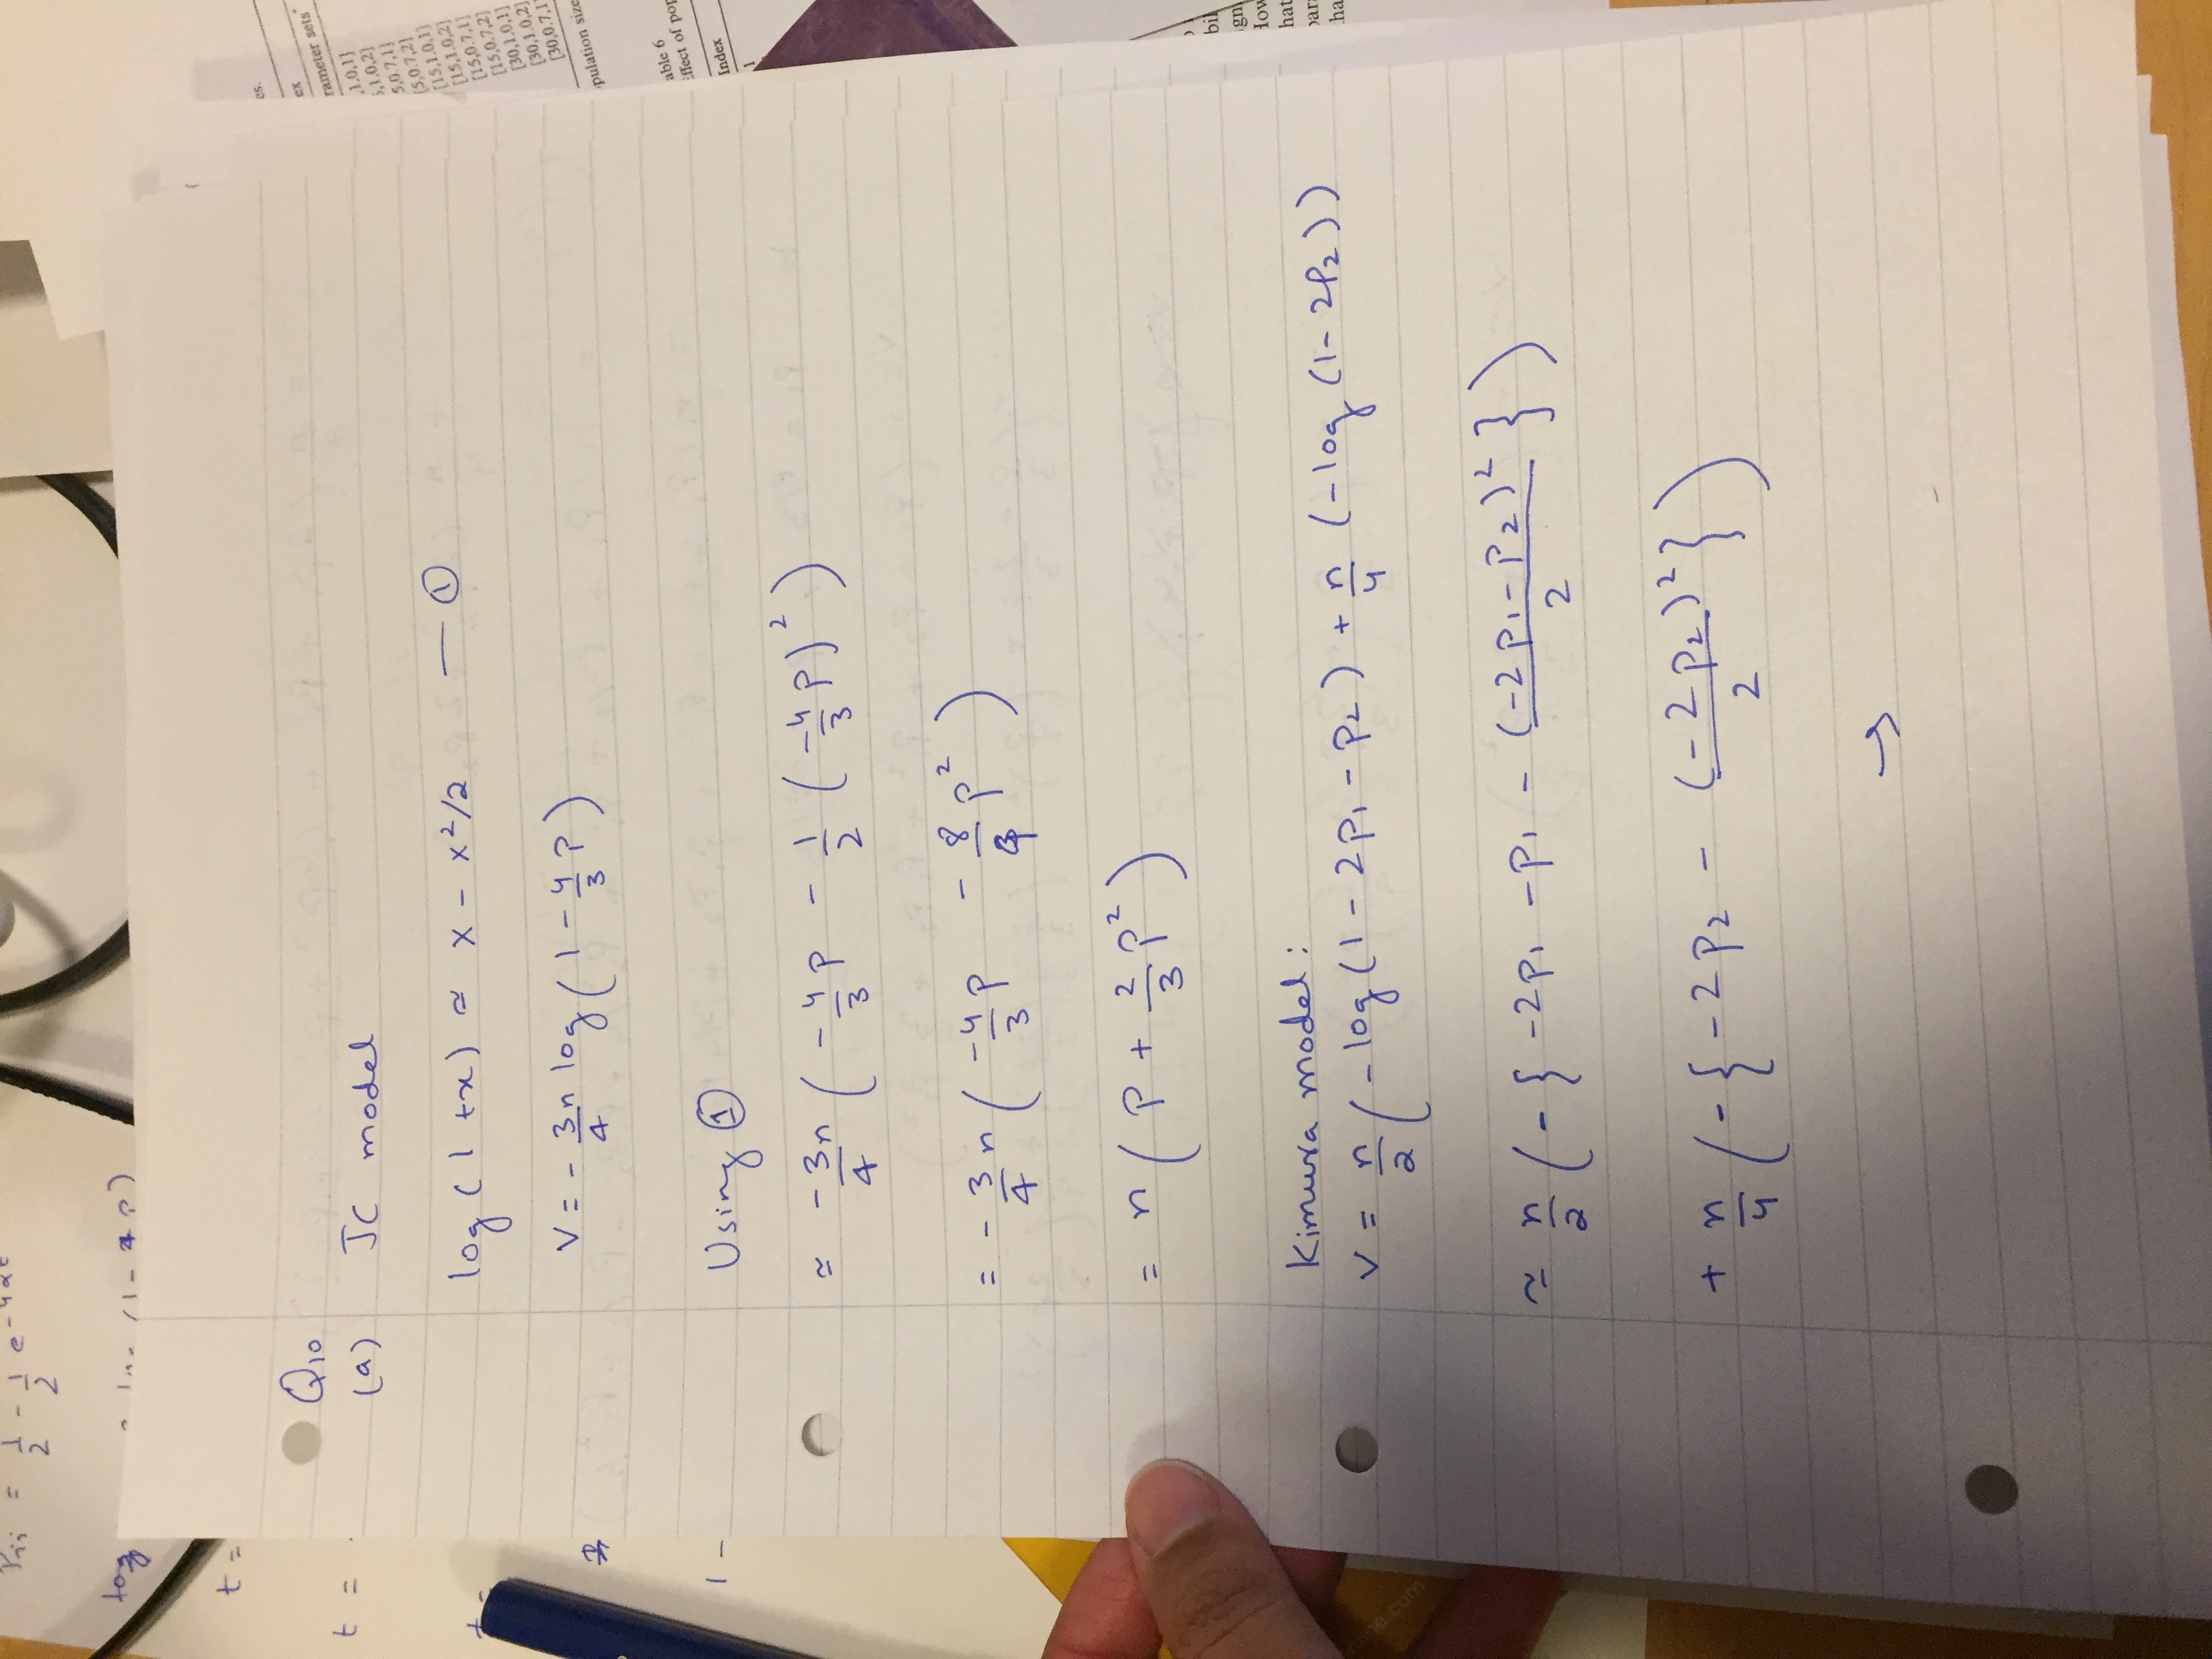 Pii = 1/2 - 1/2 e^-4αt
log
log (1 - 4 P)
t =
t =
1 -
Q10
(a) JC model
log (1 + x) ≈ x - x²/2 — ①
V = - 3n/4 log (1 - 4/3 P)
Using ①
≈ -3n/4 ( -4/3 P - 1/2 (-4/3 P)² )
= - 3/4 n ( -4/3 P - 8/9 P² )
= n ( P + 2/3 P² )
Kimura model:
V = n/2 ( -log (1 - 2P₁ - P₂) + n/4 (-log (1 - 2P₂))
≈ n/2 ( - { -2P₁ - P₁ - (-2P₁ - P₂)²/2 } )
+ n/4 ( - { -2P₂ - (-2P₂)²/2 } )
→
es.
ex
rameter sets*
,1.0,1]
5,1.0,2]
5,0.7,1]
[5,0.7,2]
[15,1.0,1]
[15,1.0,2]
[15,0.7,1]
[15,0.7,2]
[30,1.0,1]
[30,1.0,2]
[30,0.7,1]
pulation size
able 6
ffect of pop
Index
1
bil
gn
How
hat
par
ha
e.com